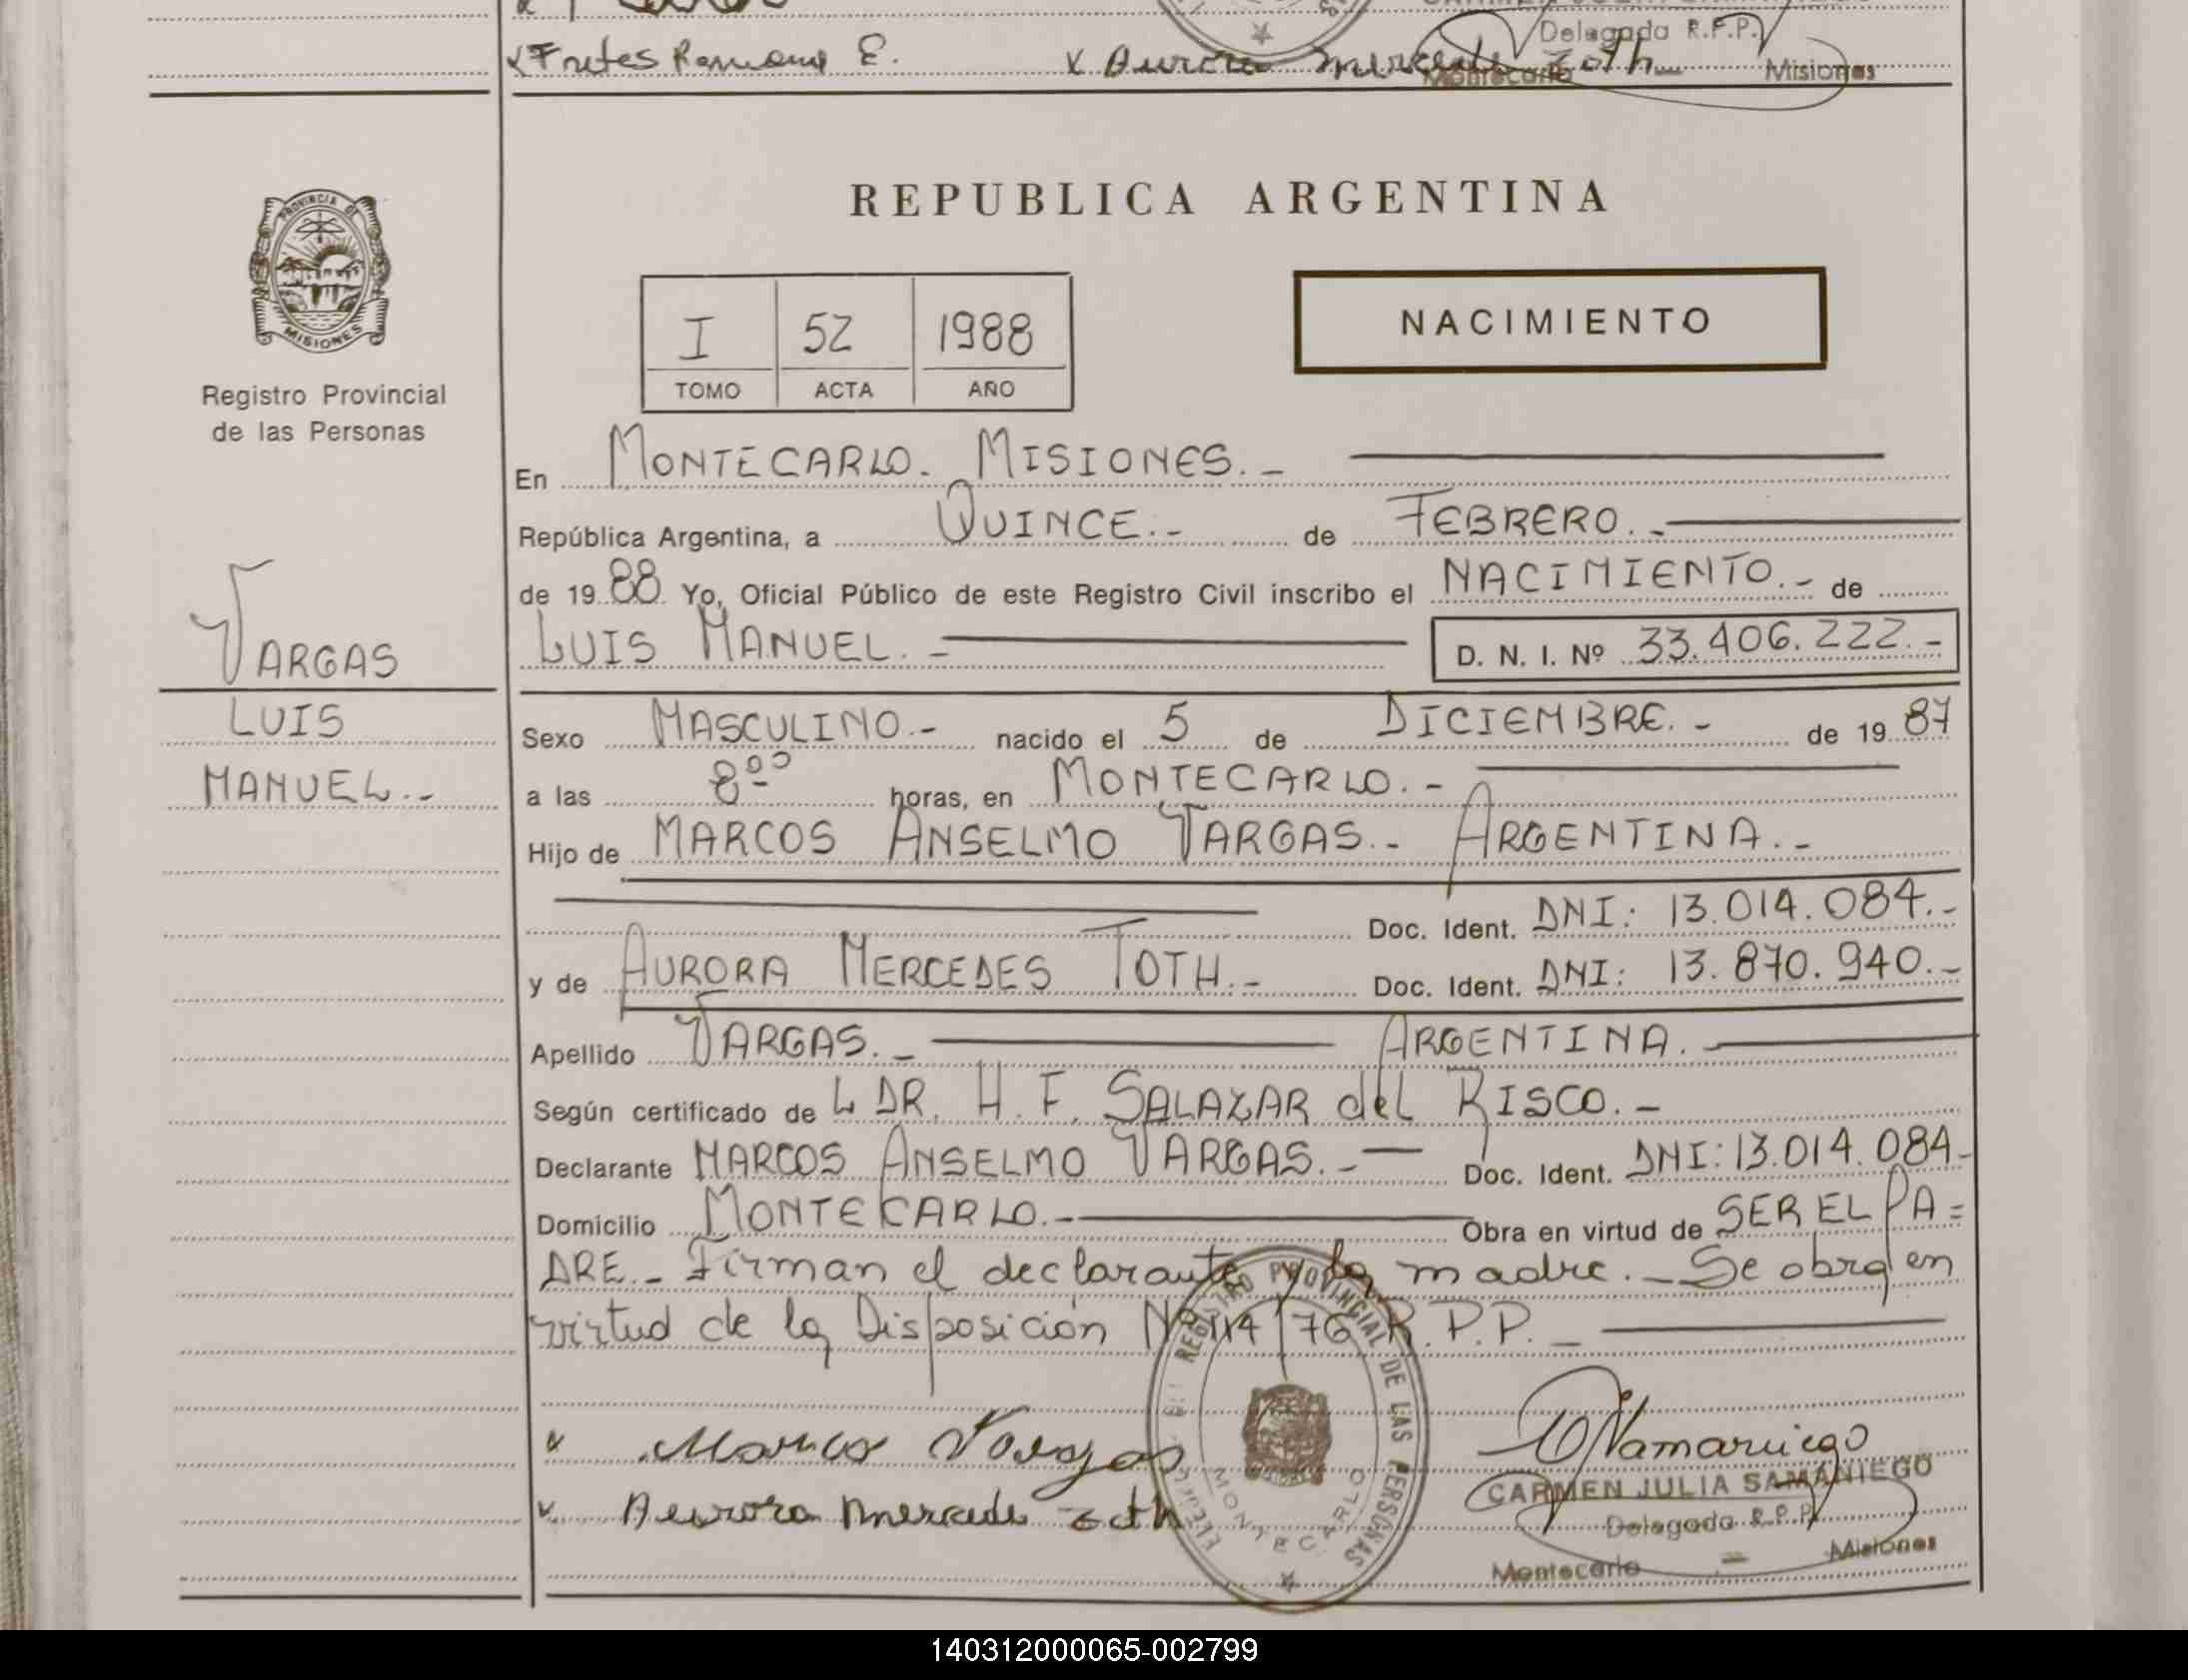 Delegada R.F.P.
Fretes Ramona E. Aurora Mercede Toth
Montecarlo Misiones
PROVINCIA DE
MISIONES
Registro Provincial
de las Personas
REPUBLICA ARGENTINA
I 52 1988
TOMO ACTA AÑO
NACIMIENTO
En MONTECARLO. MISIONES.-
República Argentina, a QUINCE.- de FEBRERO.-
de 1988 Yo, Oficial Público de este Registro Civil inscribo el NACIMIENTO.- de
LUIS MANUEL.- D. N. I. Nº 33.406.222.-
VARGAS
LUIS
MANUEL.-
Sexo MASCULINO.- nacido el 5 de DICIEMBRE.- de 1987
a las 8ºº horas, en MONTECARLO.-
Hijo de MARCOS ANSELMO VARGAS.- ARGENTINA.-
Doc. Ident. DNI: 13.014.084.-
y de AURORA MERCEDES TOTH.- Doc. Ident. DNI: 13.870.940.-
Apellido VARGAS.- ARGENTINA.
Según certificado de L DR. H. F. SALAZAR del RISCO.-
Declarante MARCOS ANSELMO VARGAS.- Doc. Ident. DNI: 13.014.084-
Domicilio MONTECARLO.- Obra en virtud de SER EL PA=
DRE.- Firman el declarante y la madre.- Se obra en
virtud de la Disposición Nº 114/76 R.P.P.-
Marcos Vargas
Aurora Mercede Toth
REGISTRO PROVINCIAL DE LAS PERSONAS
MONTECARLO
CSamaniego
CARMEN JULIA SAMANIEGO
Delegada R.P.P.
Montecarlo - Misiones
140312000065-002799